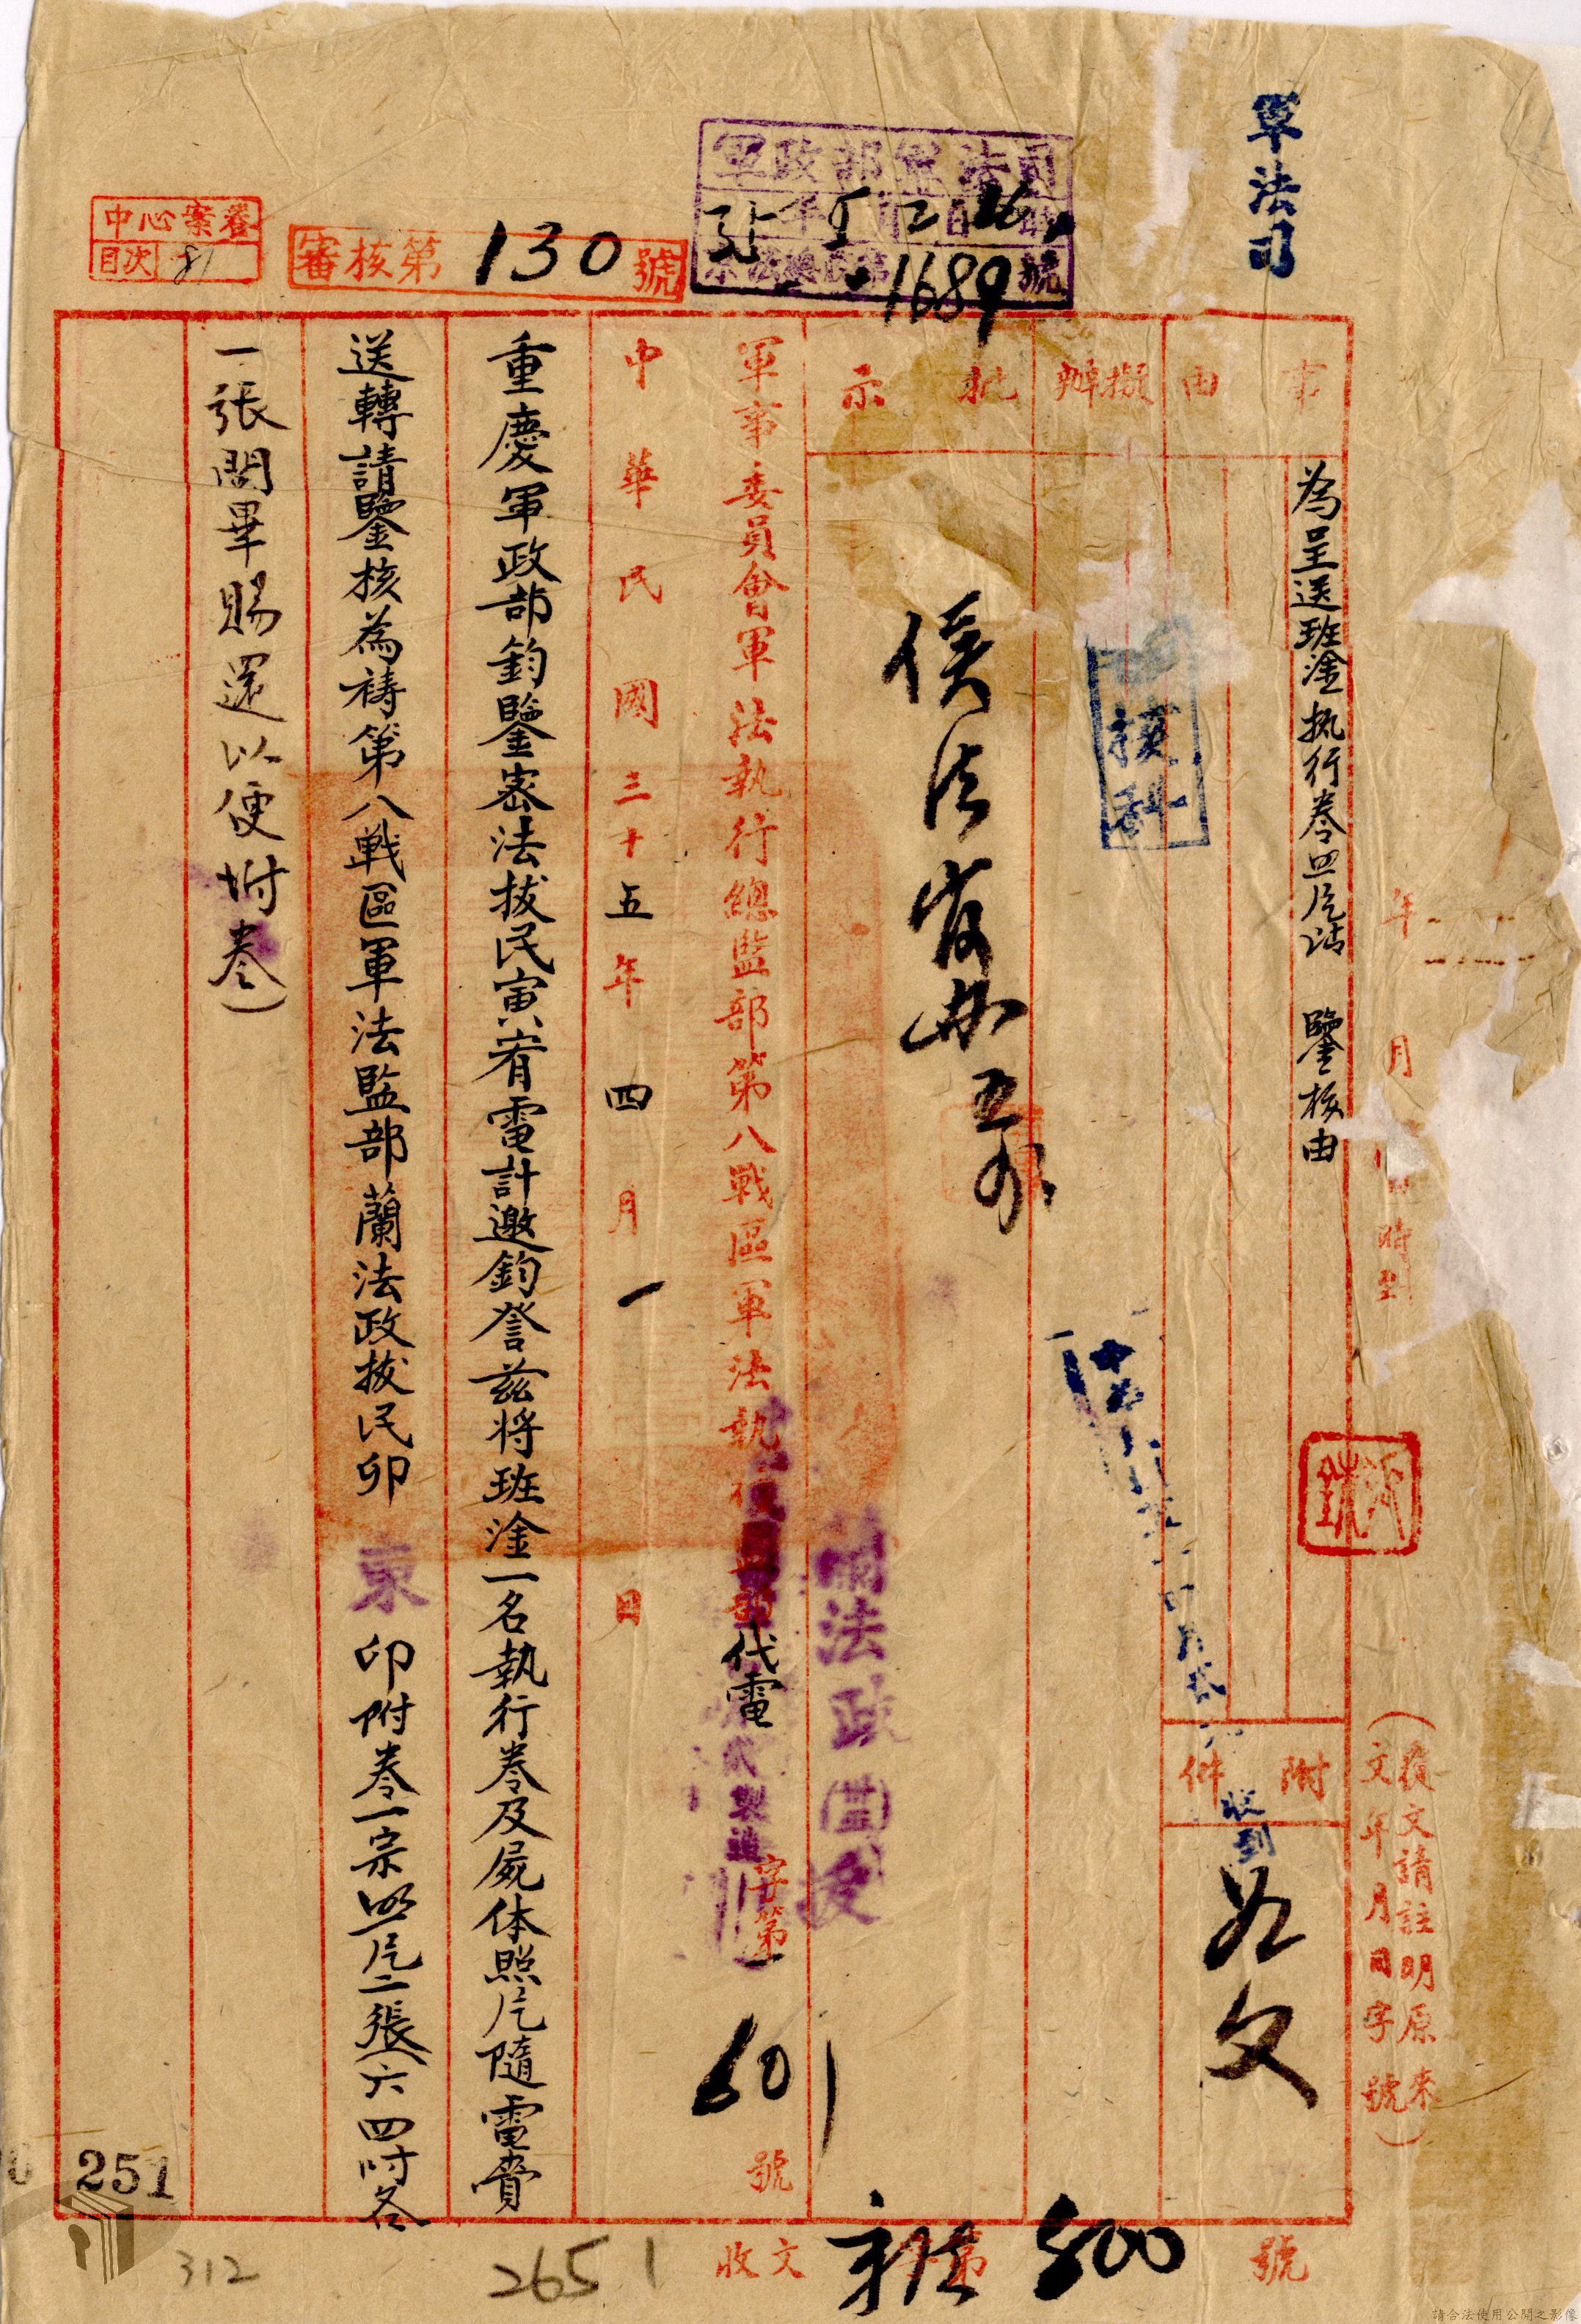 軍法司
軍政部軍法司
1689
號
審核第130號
中心案卷
目次 81
年 月 日 時到
(復文請註明原來
文年月日字號)
事由
為呈送班淦执行卷照片請 鑒核由
附件
收到
如文
擬辦
批示
軍事委員會軍法執行總監部第八戰區軍法執行監部代電
蘭法政(卅五)
字第 601 號
中華民國三十五年四月一日
重慶軍政部鈞鑒密法拔民寅宥電計邀鈞詧茲將班淦一名執行卷及屍体照片隨電賫
送轉請鑒核為禱第八戰區軍法監部蘭法政拔民卯東印附卷一宗照片二張(六四吋各
一張閱畢賜還以便附卷)
收文
第 800 號
251
312
2651
請合法使用公開之影像